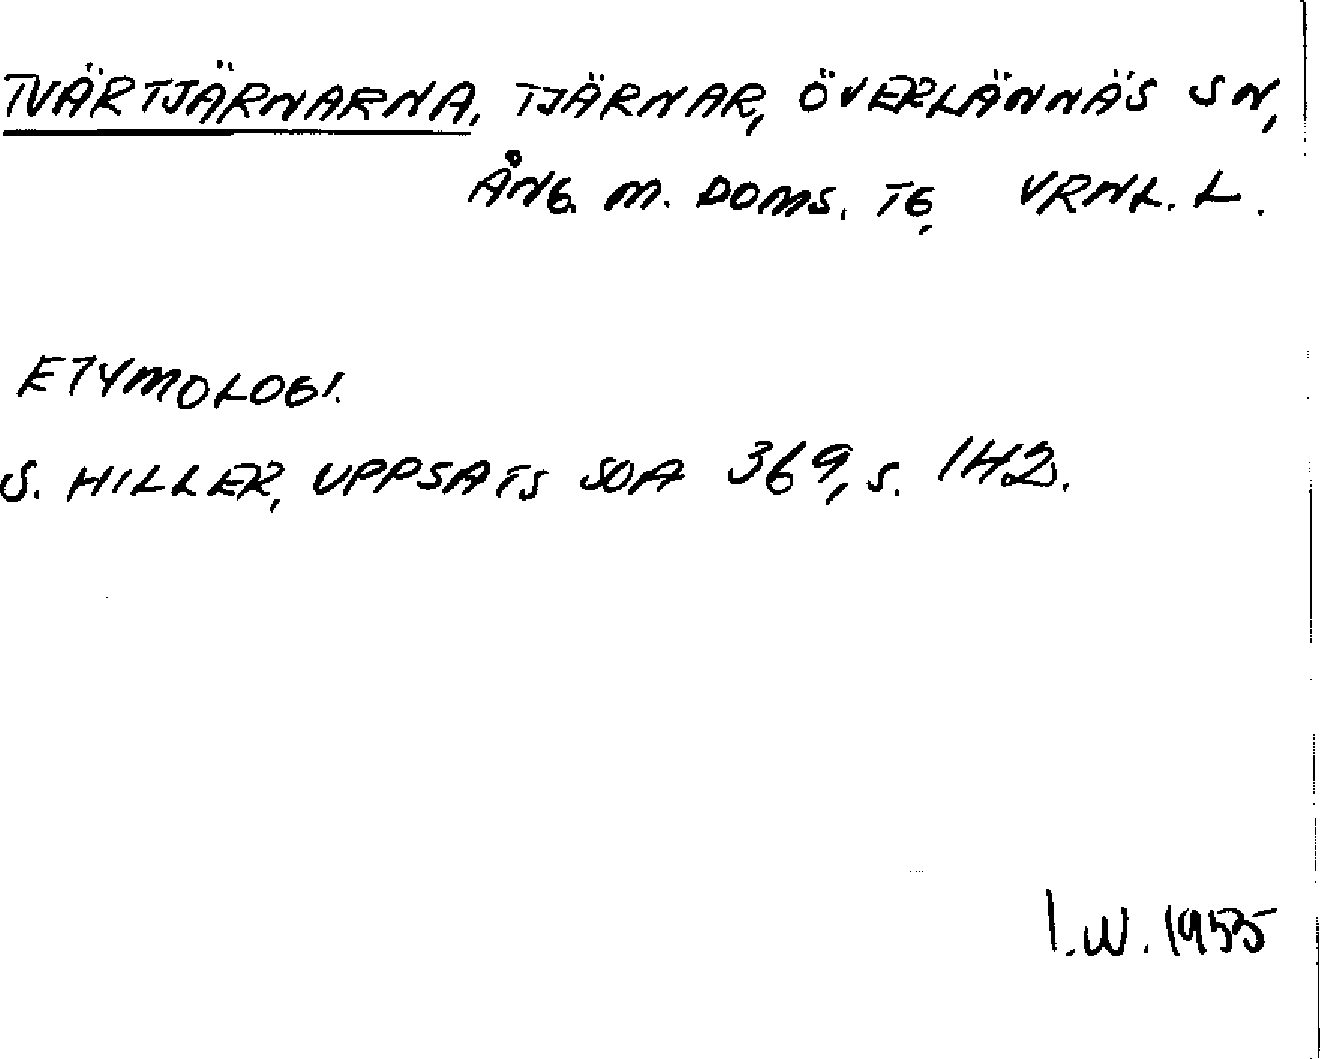 TVÄRTJÄRNARNA, TJÄRNAR, ÖVERLÄNNÄS SN,
ÅNG. M. DOMS. TG, VRNL. L.
ETYMOLOGI.
S. HILLER, UPPSATS SOA 369, S. 142.
I.W. 1955